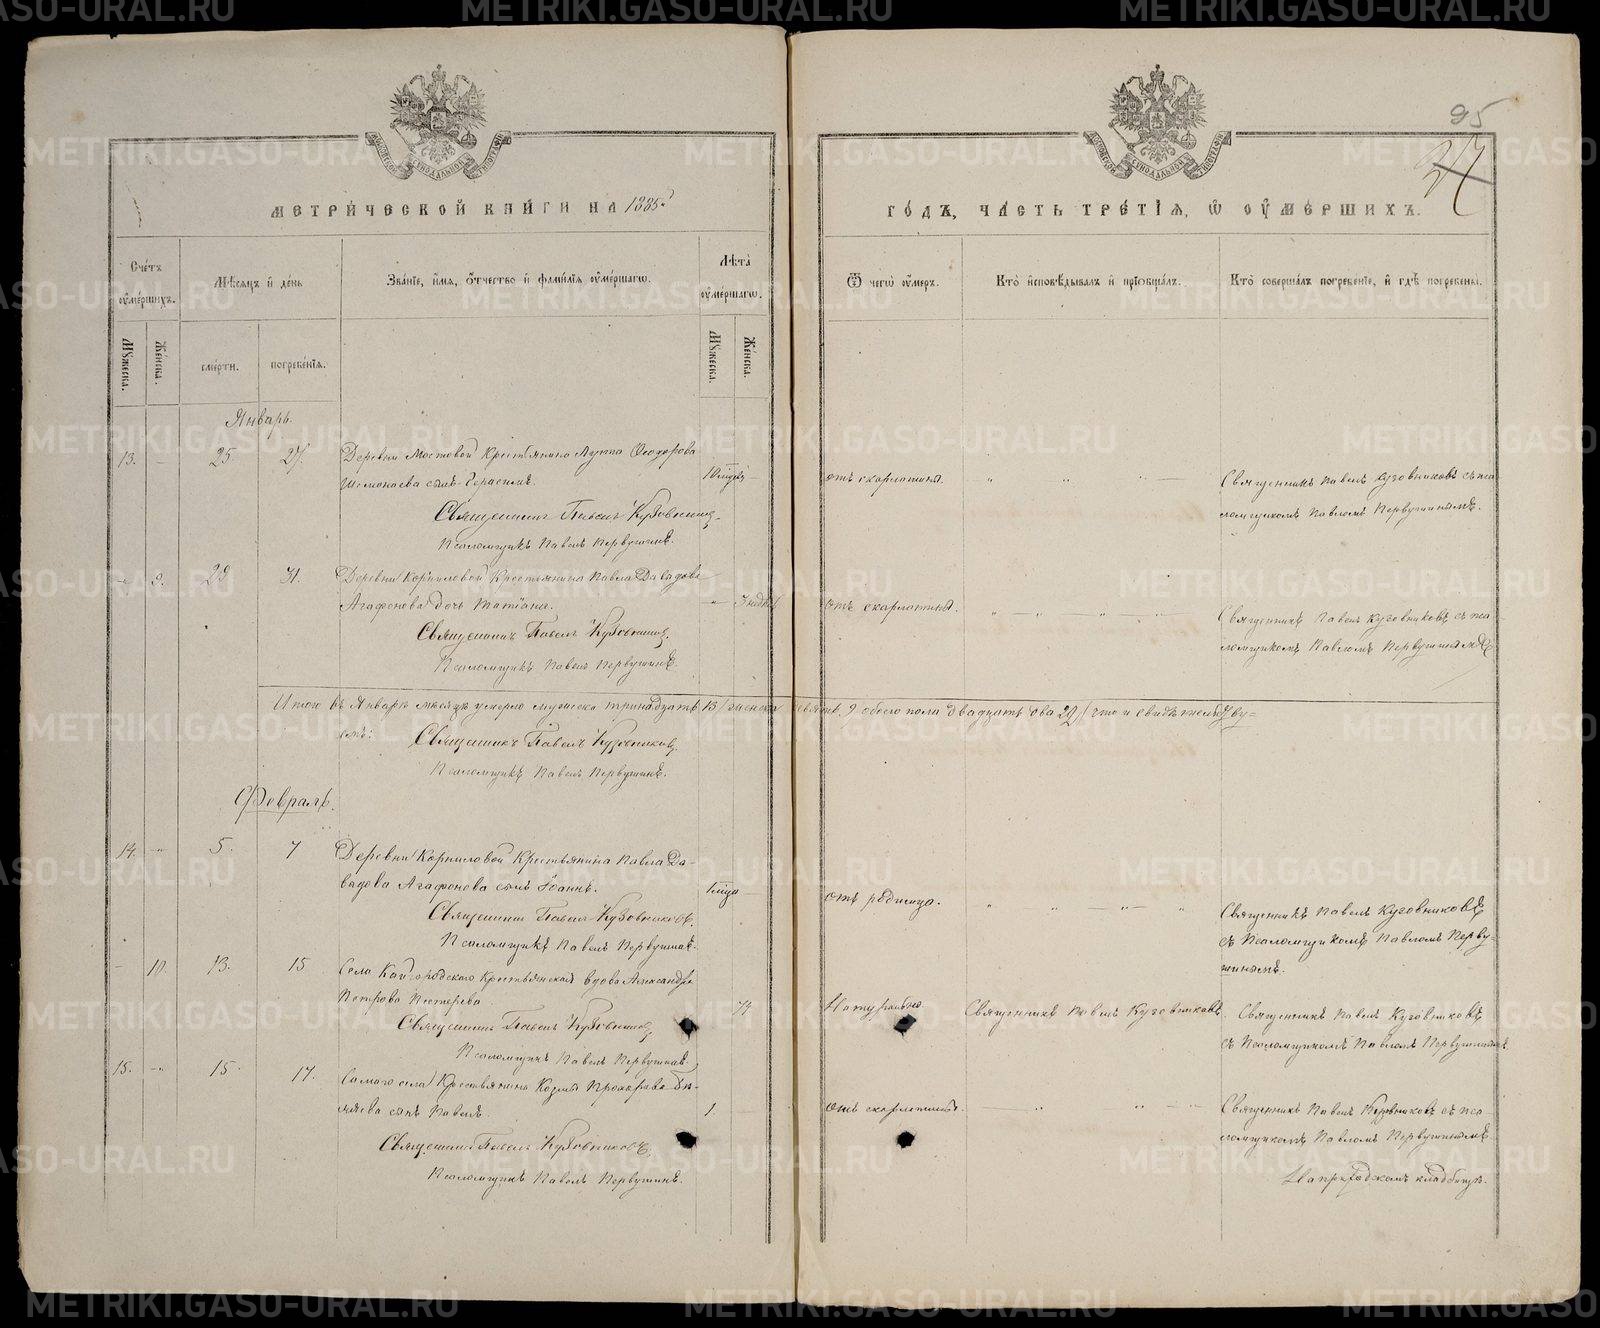 METRIKI.GASO-URAL.RU
95
27
МЕТРИЧЕСКОЙ КНИГИ НА 1885й
ГОДЪ, ЧАСТЬ ТРЕТІЯ, Ѡ ОУМЕРШИХЪ.
Счетъ оумершихъ.
Мѣсяцъ и день
Званіе, имя, отчество и фамилія оумершагѡ.
Лѣта оумершагѡ.
Ѿ чегѡ оумеръ.
Кто исповѣдывалъ и пріобщалъ.
Кто совершалъ погребеніе, и гдѣ погребены.
Мꙋжеска.
Женска.
смерти.
погребенія.
Мꙋжеска.
Женска.
Январь.
13. 25 27. Деревни Мостовой Крестьянина Луппа Ѳеодорова
сынъ Герасимъ. 10 отъ скарлатины. Священникъ Павелъ Кузовниковъ съ пса-
ломщикомъ Павломъ Первушинымъ.
Священникъ Павелъ Кузовниковъ
Псаломщикъ Павелъ Первушинъ.
9. 29 31. Деревни Корниловой Крестьянина Павла Давыдова
Агафонова дочь Татіана. 3 отъ скарлатины. Священникъ Павелъ Кузовниковъ съ пса-
ломщикомъ Павломъ Первушинымъ
Священникъ Павелъ Кузовниковъ
Псаломщикъ Павелъ Первушинъ.
Итого въ Январѣ мѣсяцѣ умерло мужеска тринадцать 13/ женска девять 9 обоего пола двадцать два 22/ что и свидѣтельству-
емъ: Священникъ Павелъ Кузовниковъ
Псаломщикъ Павелъ Первушинъ.
Февраль.
14. 5. 7 Деревни Корниловой Крестьянина Павла Да-
выдова Агафонова сынъ Іоаннъ. отъ родимца. Священникъ Павелъ Кузовниковъ
съ Псаломщикомъ Павломъ Перву-
шинымъ.
Священникъ Павелъ Кузовниковъ.
Псаломщикъ Павелъ Первушинъ.
10. 13. 15 Села Кайгородскаго Крестьянская вдова Александра
Петрова Пестерева. 74 Натурально Священникъ Павелъ Кузовниковъ Священникъ Павелъ Кузовниковъ
съ Псаломщикомъ Павломъ Первушинымъ
Священникъ Павелъ Кузовниковъ
Псаломщикъ Павелъ Первушинъ.
15. 15. 17. Самаго села Крестьянина Козмы
сынъ Павелъ. 1. отъ скарлатины. Священникъ Павелъ Кузовниковъ съ пса-
ломщикомъ Павломъ Первушинымъ
На приходскомъ кладбищѣ.
Священникъ Павелъ Кузовниковъ.
Псаломщикъ Павелъ Первушинъ.